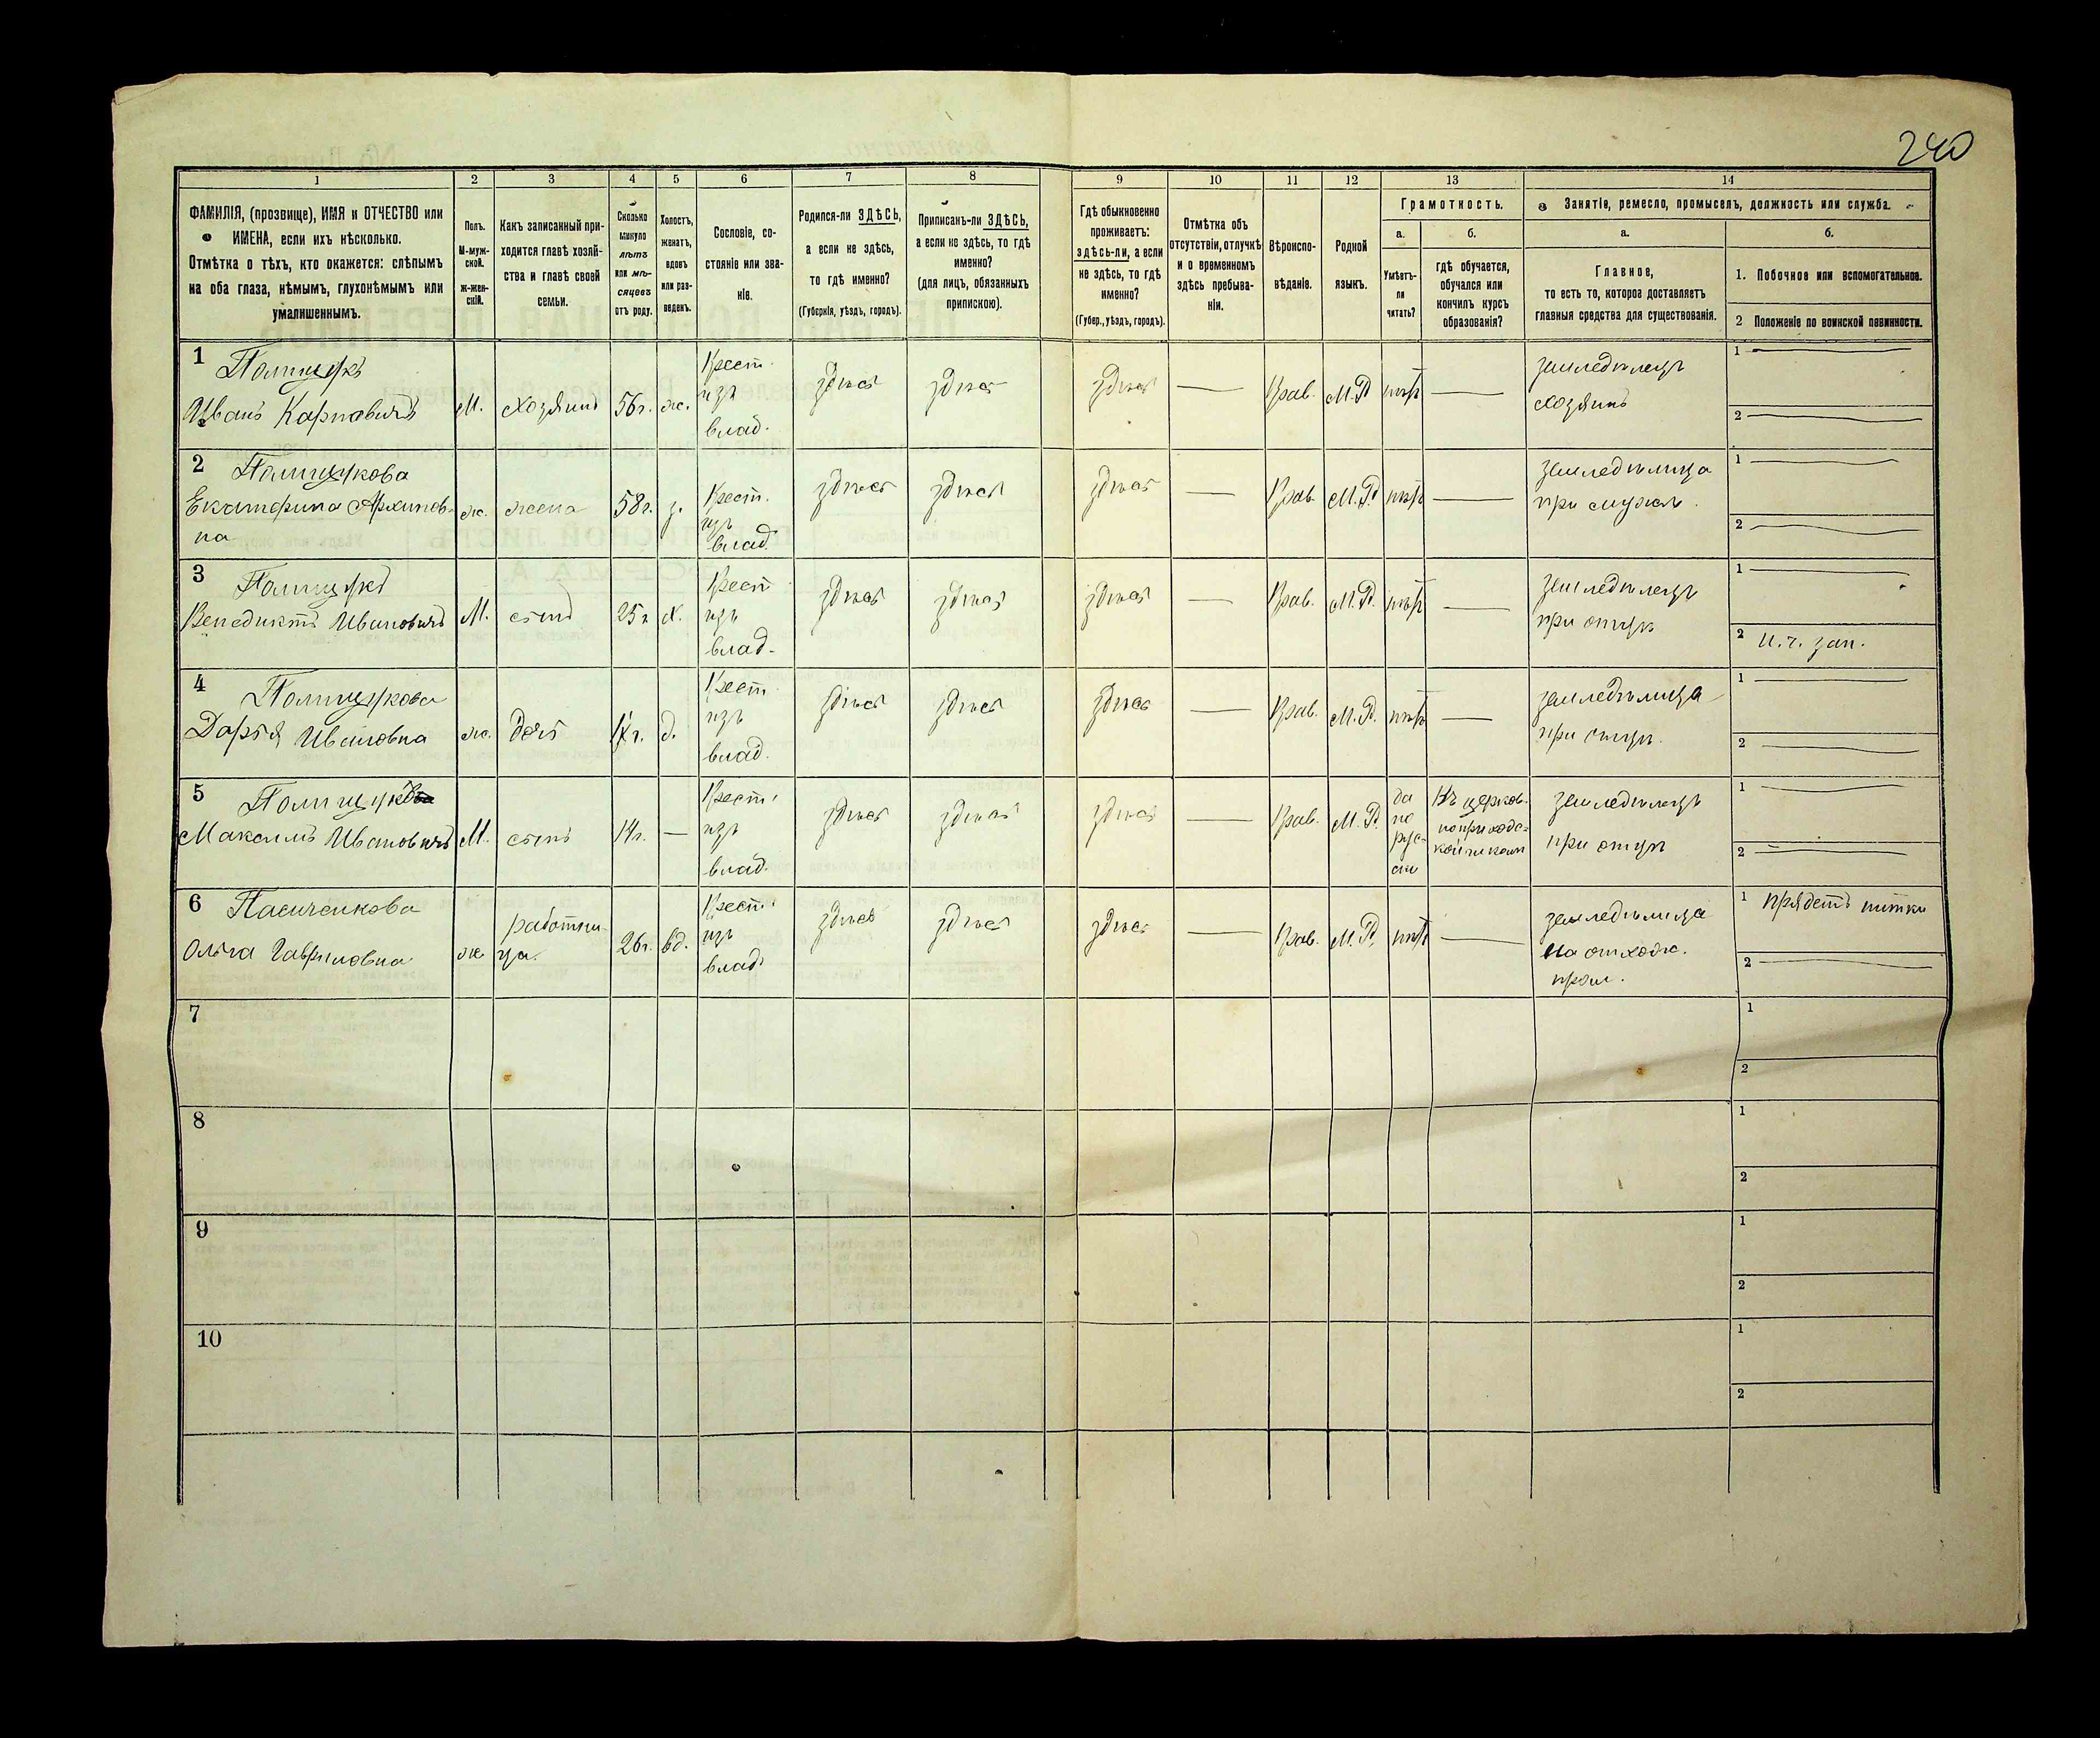 240
1
2
3
4
5
6
7
8
9
10
11
12
13
14
ФАМИЛІЯ, (прозвище), ИМЯ и ОТЧЕСТВО или
ИМЕНА, если ихъ нѣсколько.
Отмѣтка о тѣхъ, кто окажется: слѣпымъ
на оба глаза, нѣмымъ, глухонѣмымъ или
умалишеннымъ.
Полъ.
М-муж-
ской.
Ж-жен-
скій.
Какъ записанный при-
ходится главѣ хозяй-
ства и главѣ своей
семьи.
Сколько
минуло
лѣтъ
или мѣ-
сяцевъ
отъ роду.
Холостъ,
женатъ,
вдовъ
или раз-
веденъ.
Сословіе, со-
стояніе или зва-
ніе.
Родился-ли ЗДѢСЬ,
а если не здѣсь,
то гдѣ именно?
(Губернія, уѣздъ, городъ).
Приписанъ-ли ЗДѢСЬ,
а если не здѣсь, то гдѣ
именно?
(для лицъ, обязанныхъ
припискою).
Гдѣ обыкновенно
проживаетъ:
здѣсь-ли, а если
не здѣсь, то гдѣ
именно?
(Губер., уѣздъ, городъ).
Отмѣтка объ
отсутствіи, отлучкѣ
и о временномъ
здѣсь пребыва-
ніи.
Вѣроиспо-
вѣданіе.
Родной
языкъ.
Грамотность.
а.
Умѣетъ-
ли
читать?
б.
гдѣ обучается,
обучался или
кончилъ курсъ
образованія?
Занятіе, ремесло, промыселъ, должность или служба.
а.
Главное,
то есть то, которое доставляетъ
главныя средства для существованія.
б.
1. Побочное или вспомогательное.
2 Положеніе по воинской повинности.
1 Полищукъ
Иванъ Карповичъ
М.
хозяинъ
56 г.
ж.
Крест.
изъ
влад.
здѣсь
здѣсь
здѣсь
—
Прав.
М.Р.
нѣтъ
—
земледѣлецъ
хозяинъ
1 —
2 —
2 Полищукова
Екатерина Архипов-
на
ж.
жена
58 г.
з.
Крест.
изъ
влад.
здѣсь
здѣсь
здѣсь
—
Прав.
М.Р.
нѣтъ
—
земледѣлица
при мужѣ.
1 —
2 —
3 Полищукъ
Венедиктъ Ивановичъ
М.
сынъ
25 г.
х.
Крест.
изъ
влад.
здѣсь
здѣсь
здѣсь
—
Прав.
М.Р.
нѣтъ
—
земледѣлецъ
при отцѣ
1 —
2 и. ч. зап.
4 Полищукова
Дарья Ивановна
ж.
дочь
д.
Крест.
изъ
влад.
здѣсь
здѣсь
здѣсь
—
Прав.
М.Р.
нѣтъ
—
земледѣлица
при отцѣ.
1 —
2 —
5 Полищукъ
Максимъ Ивановичъ
М.
сынъ
14 г.
—
Крест.
изъ
влад.
здѣсь
здѣсь
здѣсь
—
Прав.
М.Р.
да
по
рус-
ски
Въ церков-
ноприходс-
кой школѣ
земледѣлецъ
при отцѣ
1 —
2 —
6 Пасиченкова
Ольга Гавриловна
ж.
работни-
ца.
26 г.
вд.
Крест.
изъ
влад.
здѣсь
здѣсь
здѣсь
—
Прав.
М.Р.
нѣтъ
—
земледѣлица
на отхож.
пром.
1 прядетъ нитки
2 —
7
1
2
8
1
2
9
1
2
10
1
2